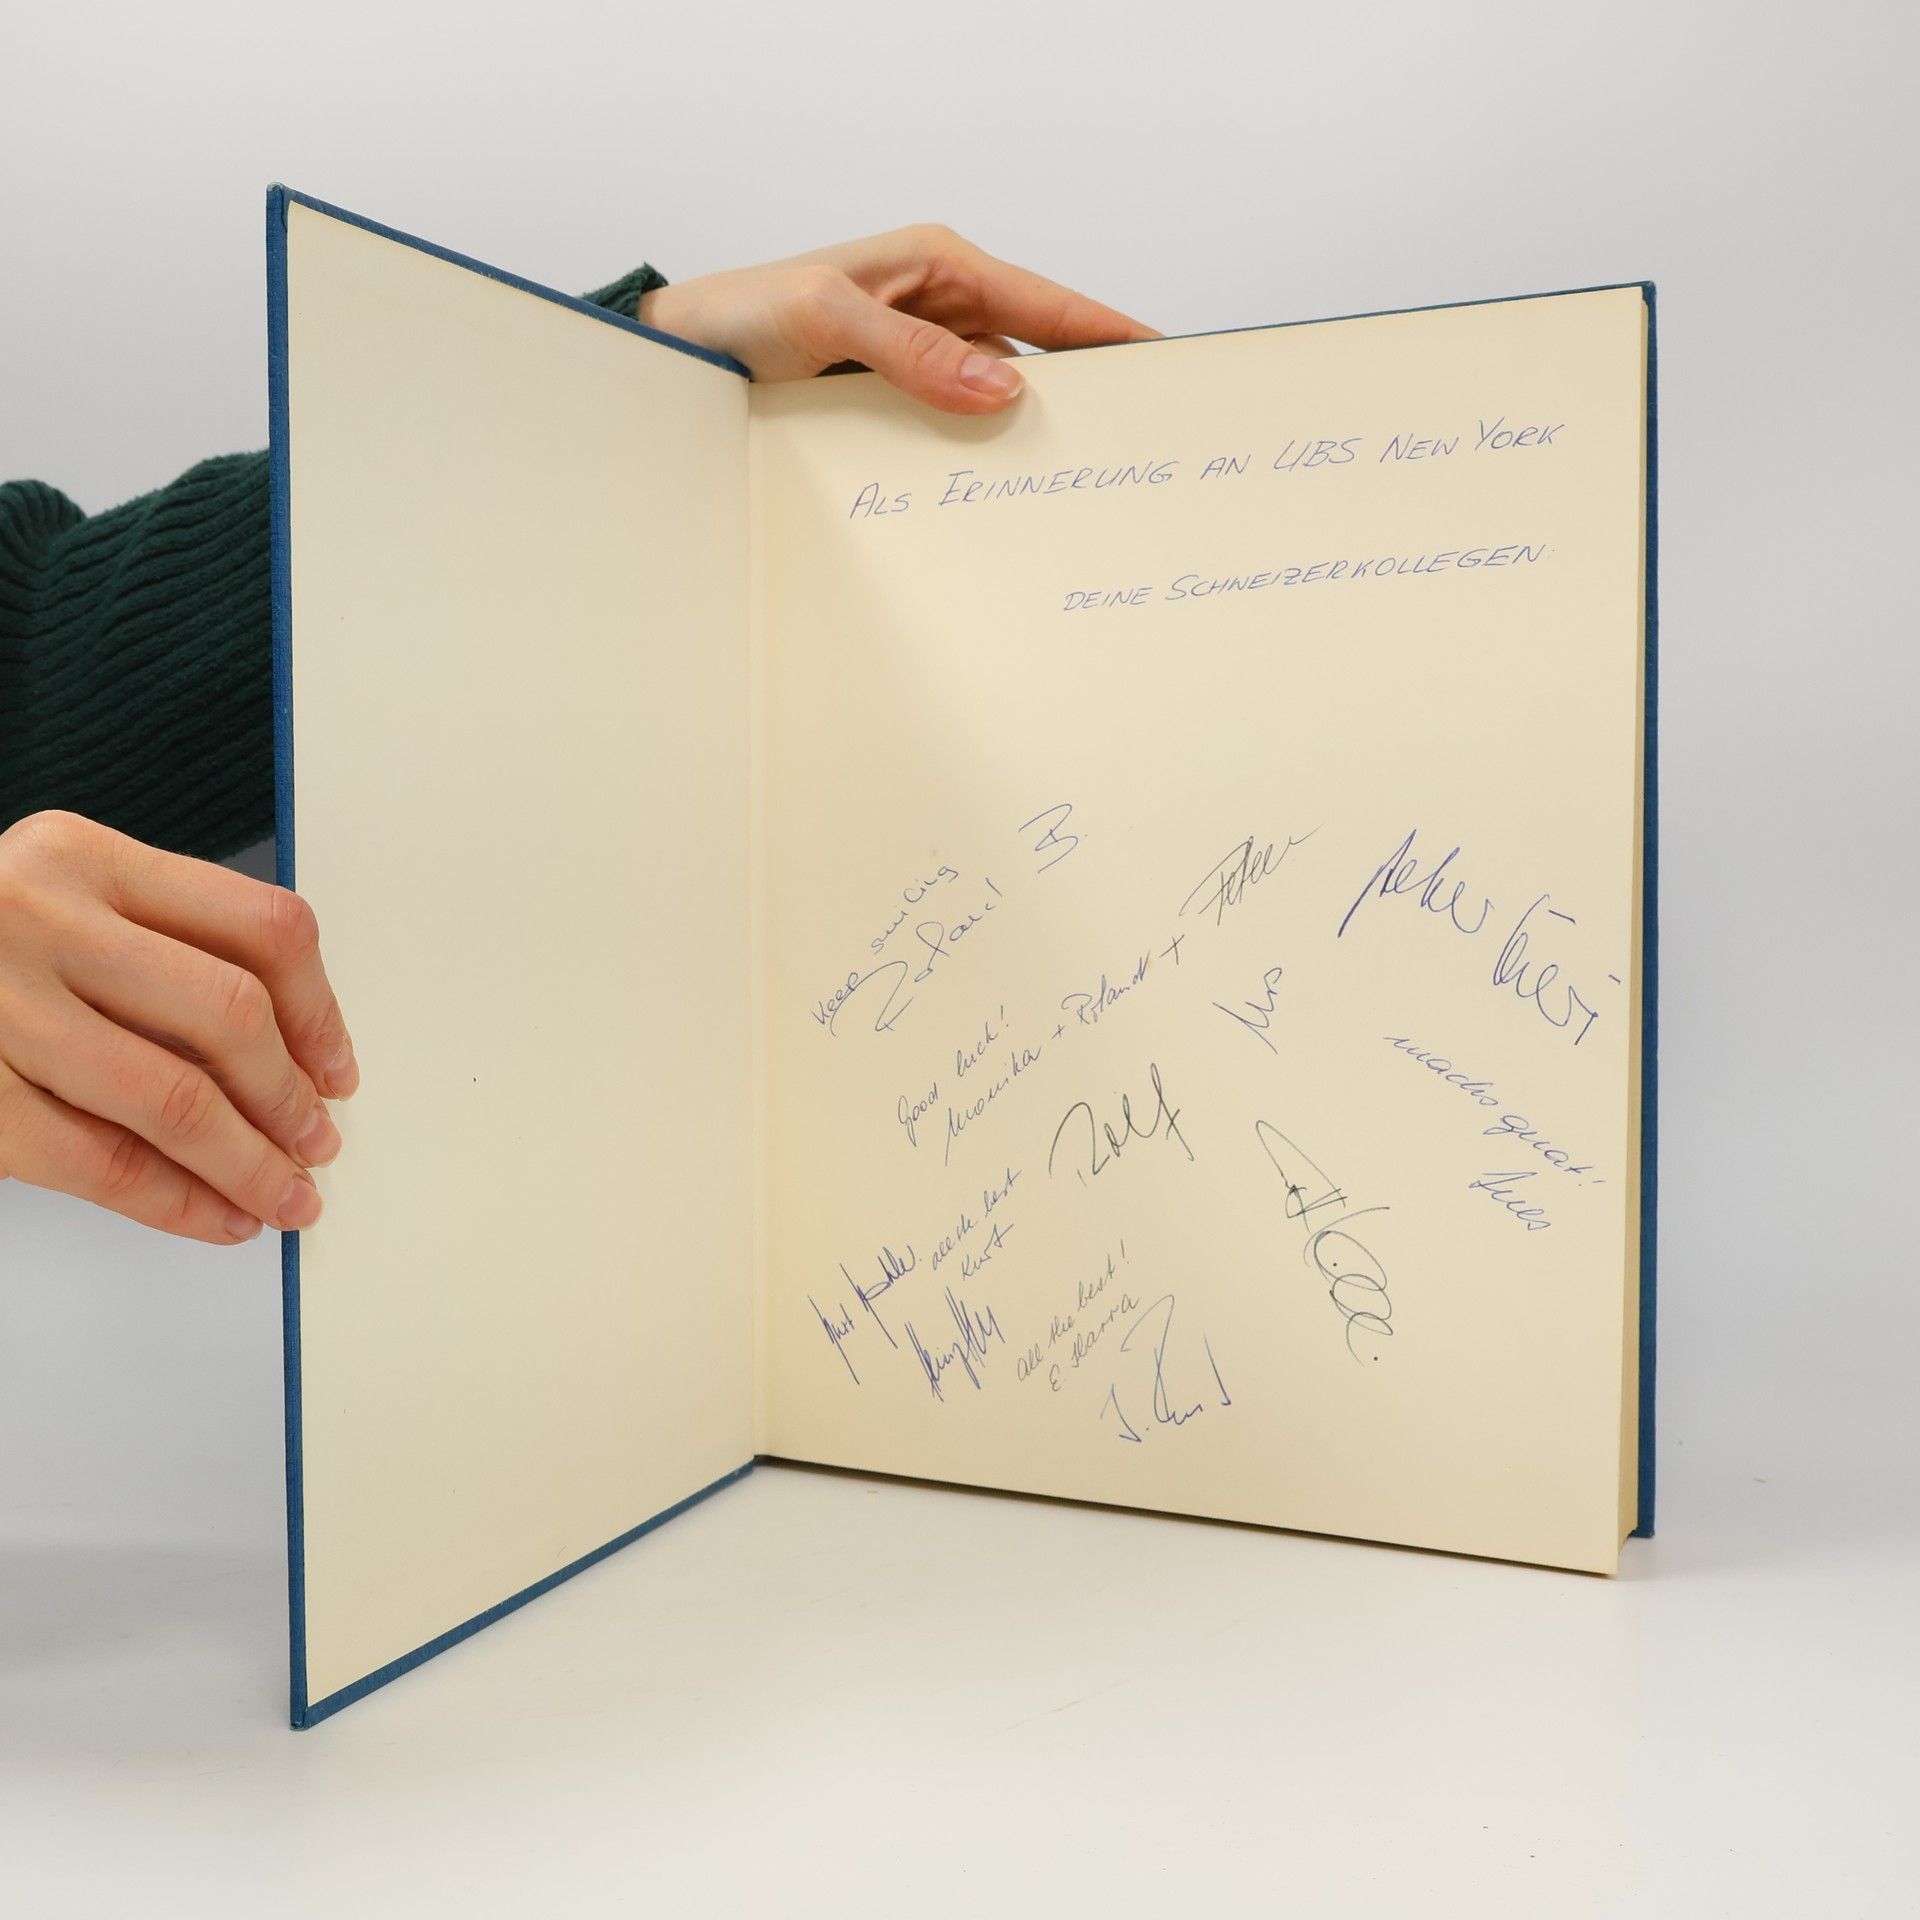 ALS ERINNERUNG AN UBS NEW YORK
DEINE SCHWEIZERKOLLEGEN:
Keep smiling
Roland
Good luck!
Monika + Roland + Peter
Peter
Urs
machs guat!
Rolf
all the best
Kurt
Kurt
All the best!
E. Ibarra
J.